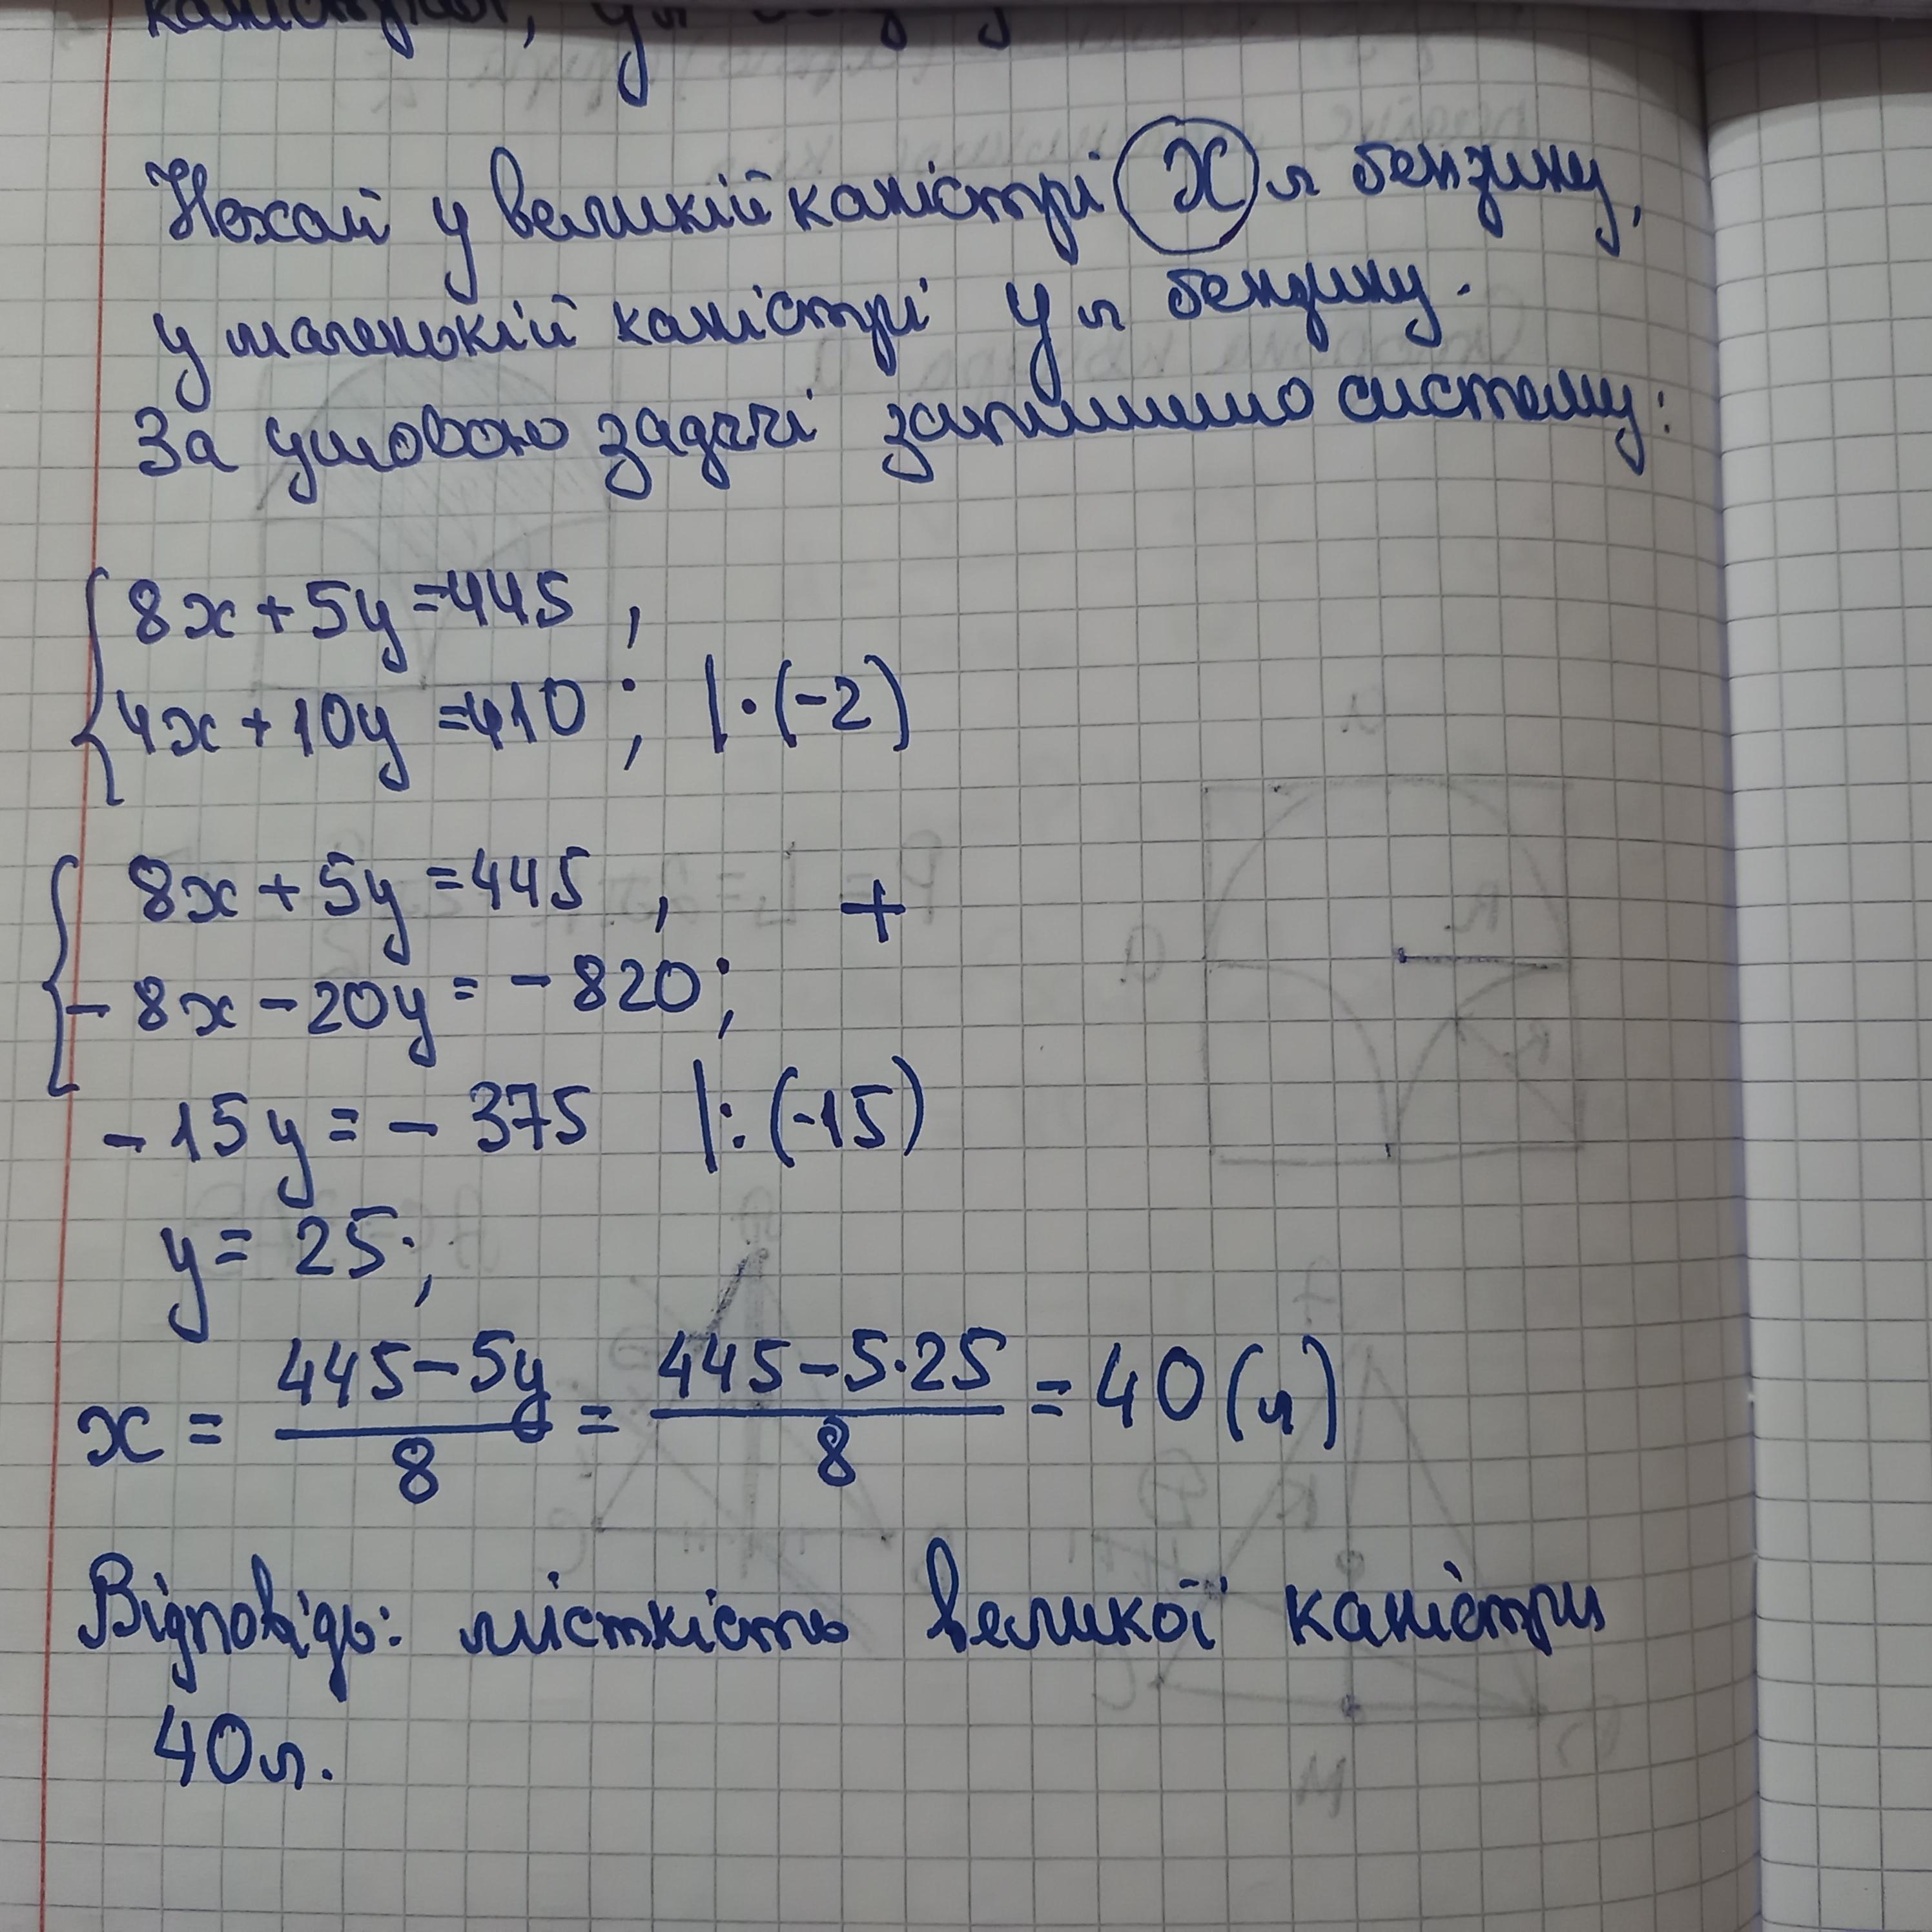 Нехай у великій каністрі x л бензину,
у маленькій каністрі y л бензину.
За умовою задачі запишемо систему:
8x + 5y = 445 ,
4x + 10y = 410 ; | · (-2)
8x + 5y = 445 , +
- 8x - 20y = - 820 ;
- 15y = - 375 | : (-15)
y = 25 ;
x = (445 - 5y)/8 = (445 - 5·25)/8 = 40 (л)
Відповідь: місткість великої каністри
40 л.